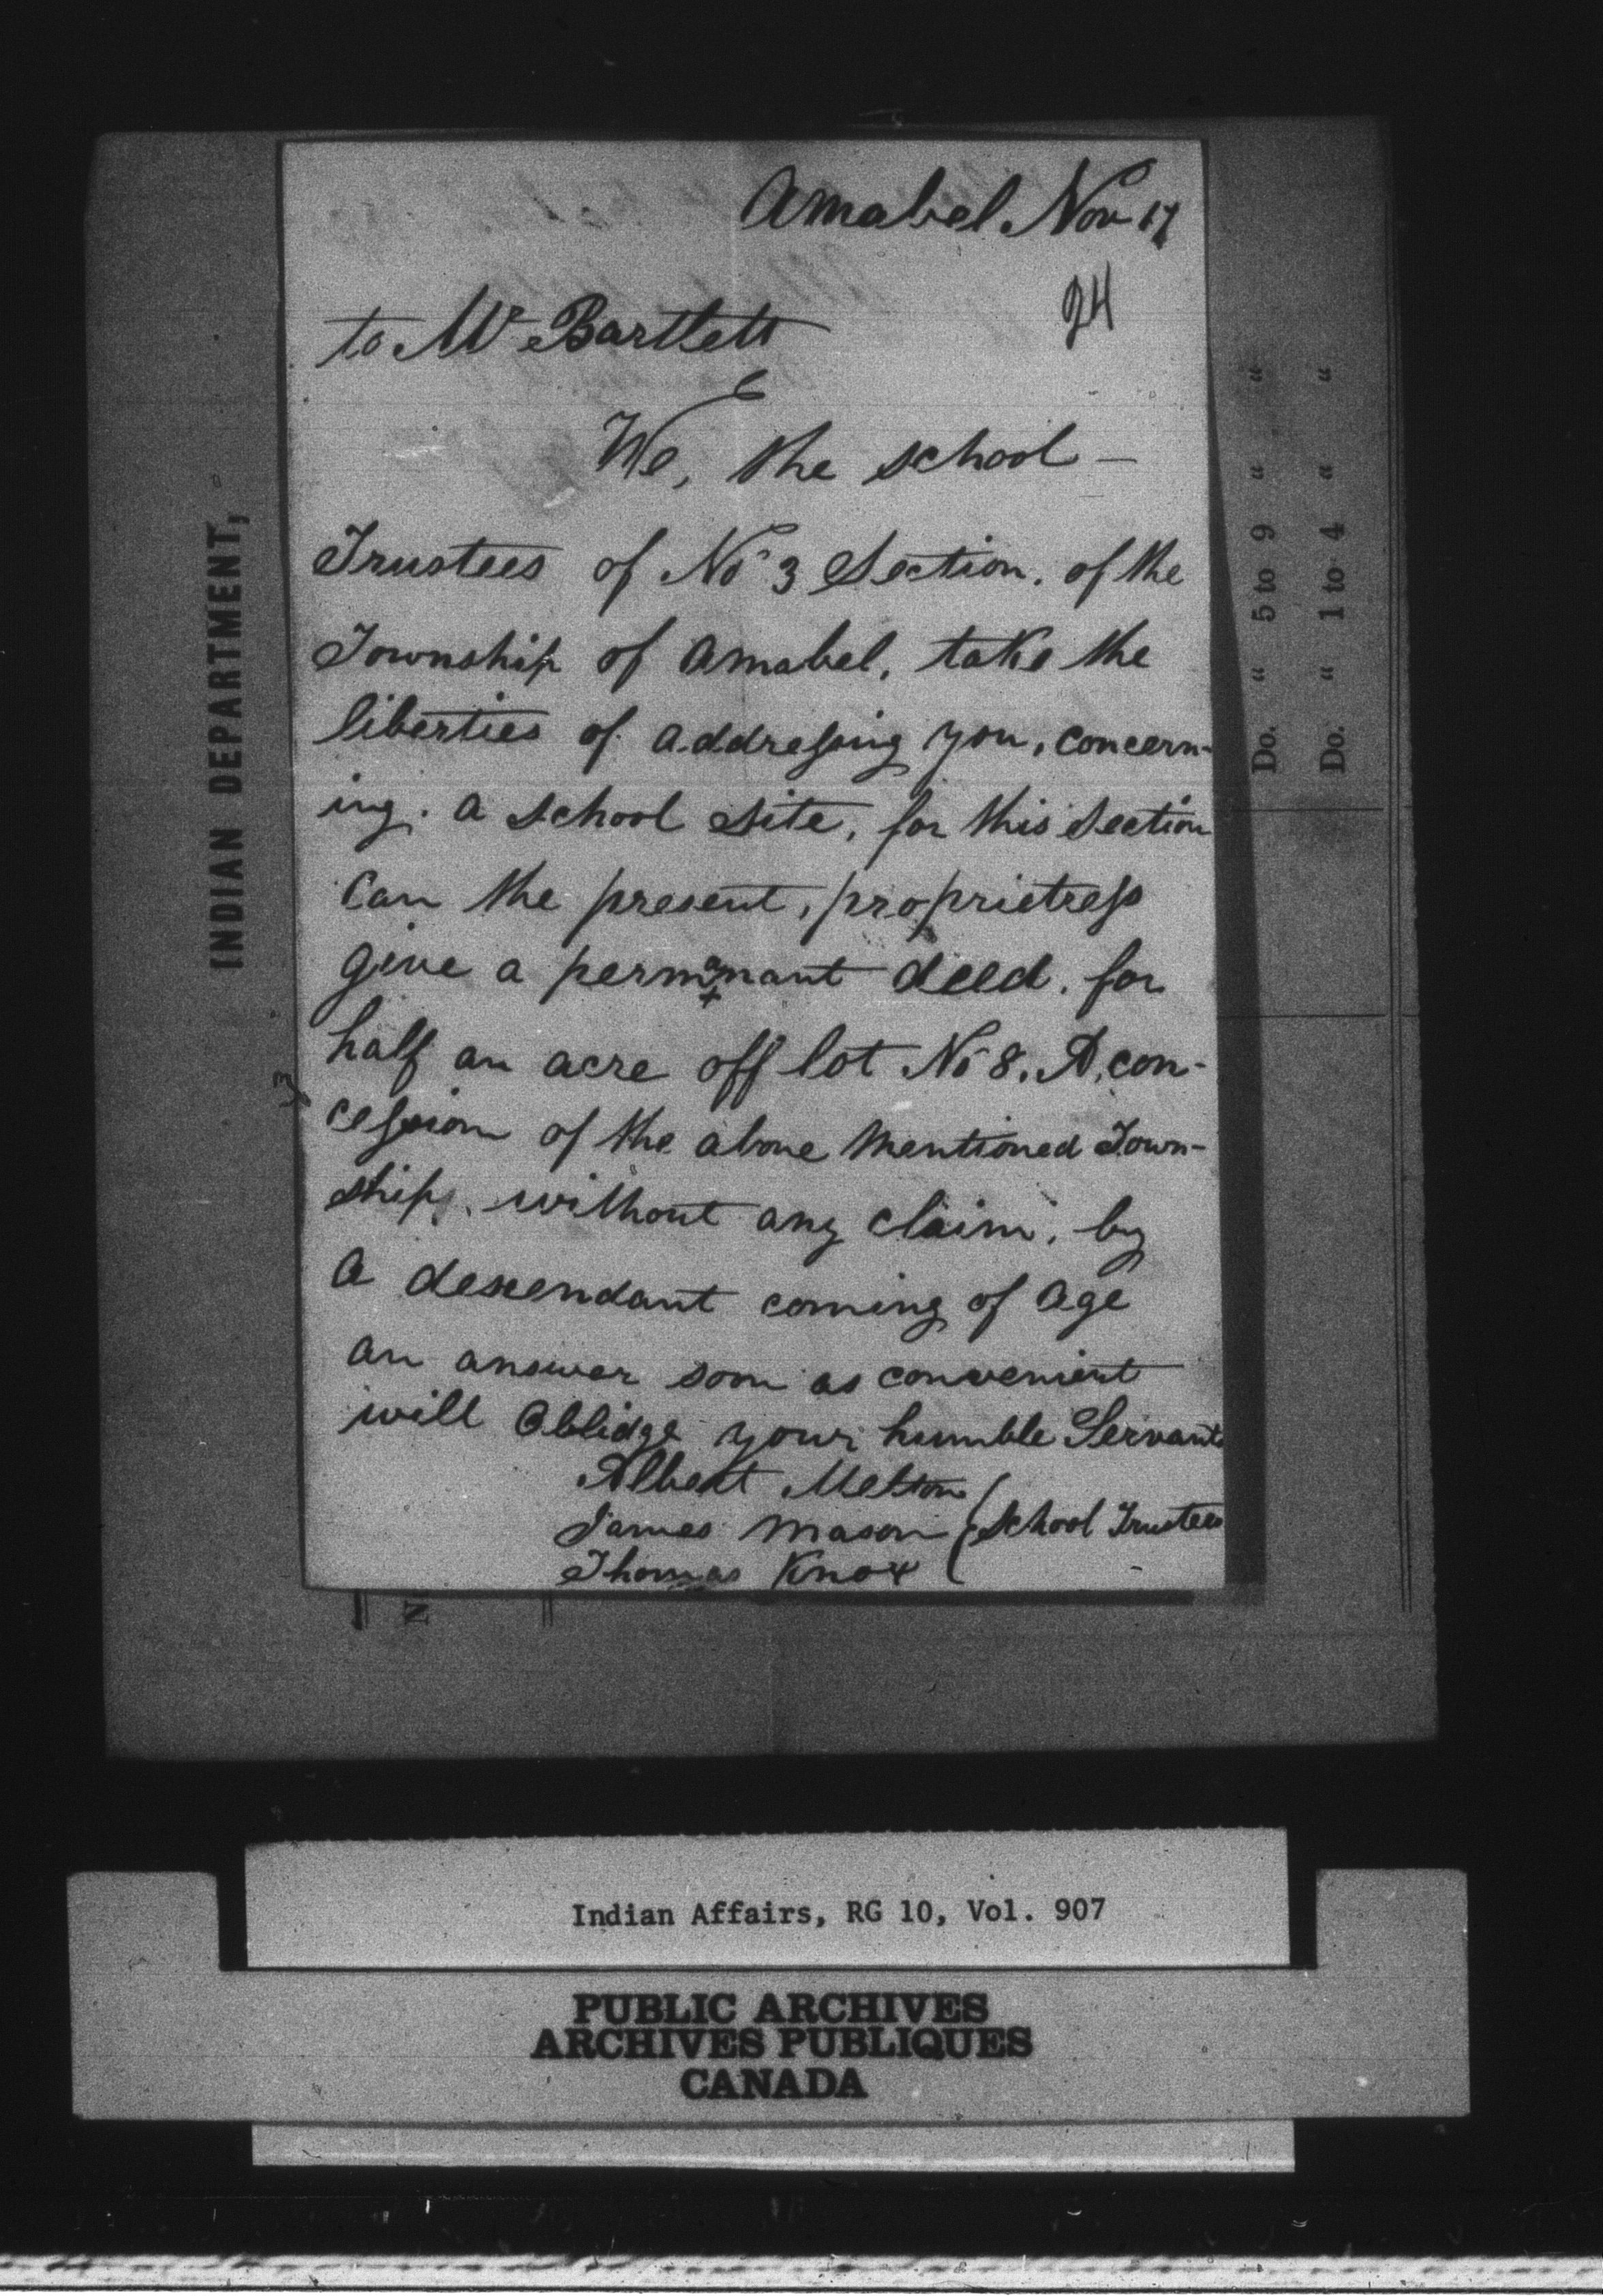 Amabel Nov 17
24
to Mr Bartlett
We, the school –
Trustees of No 3 Section. of the
Township of Amabel, take the
liberties of addressing you, concern-
ing. a school site, for this Section
Can the present, proprietress
give a permanant deed. for
half an acre off lot No 8. A. con-
cession of the above mentioned Town-
ship. without any claim, by
a desendant coming of age
an answer soon as convenient
will Oblidge your humble Servants
Albert Melton
James Mason School Trustees
Thomas Knox
INDIAN DEPARTMENT,
Do. " 5 to 9 " "
Do. " 1 to 4 " "
N
Indian Affairs, RG 10, Vol. 907
PUBLIC ARCHIVES
ARCHIVES PUBLIQUES
CANADA